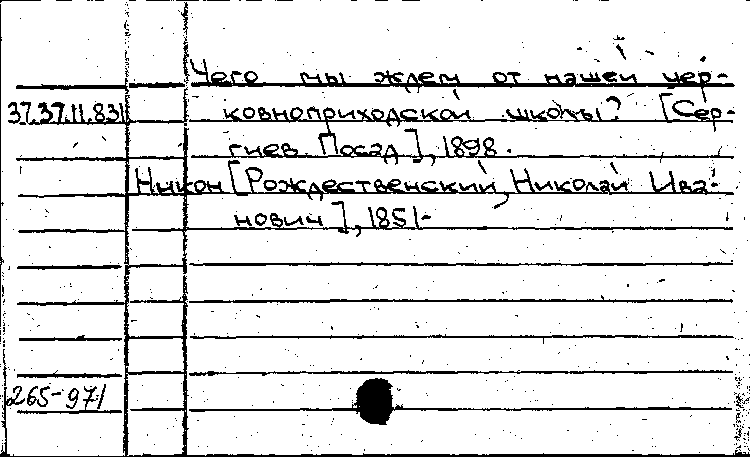 Чего мы ждем от нашей цер-
37.37.11.831 ковноприходской школы? [Сер-
гиев Посад], 1898.
Никон [Рождественский, Николай Ива-
нович], 1851-
265-971